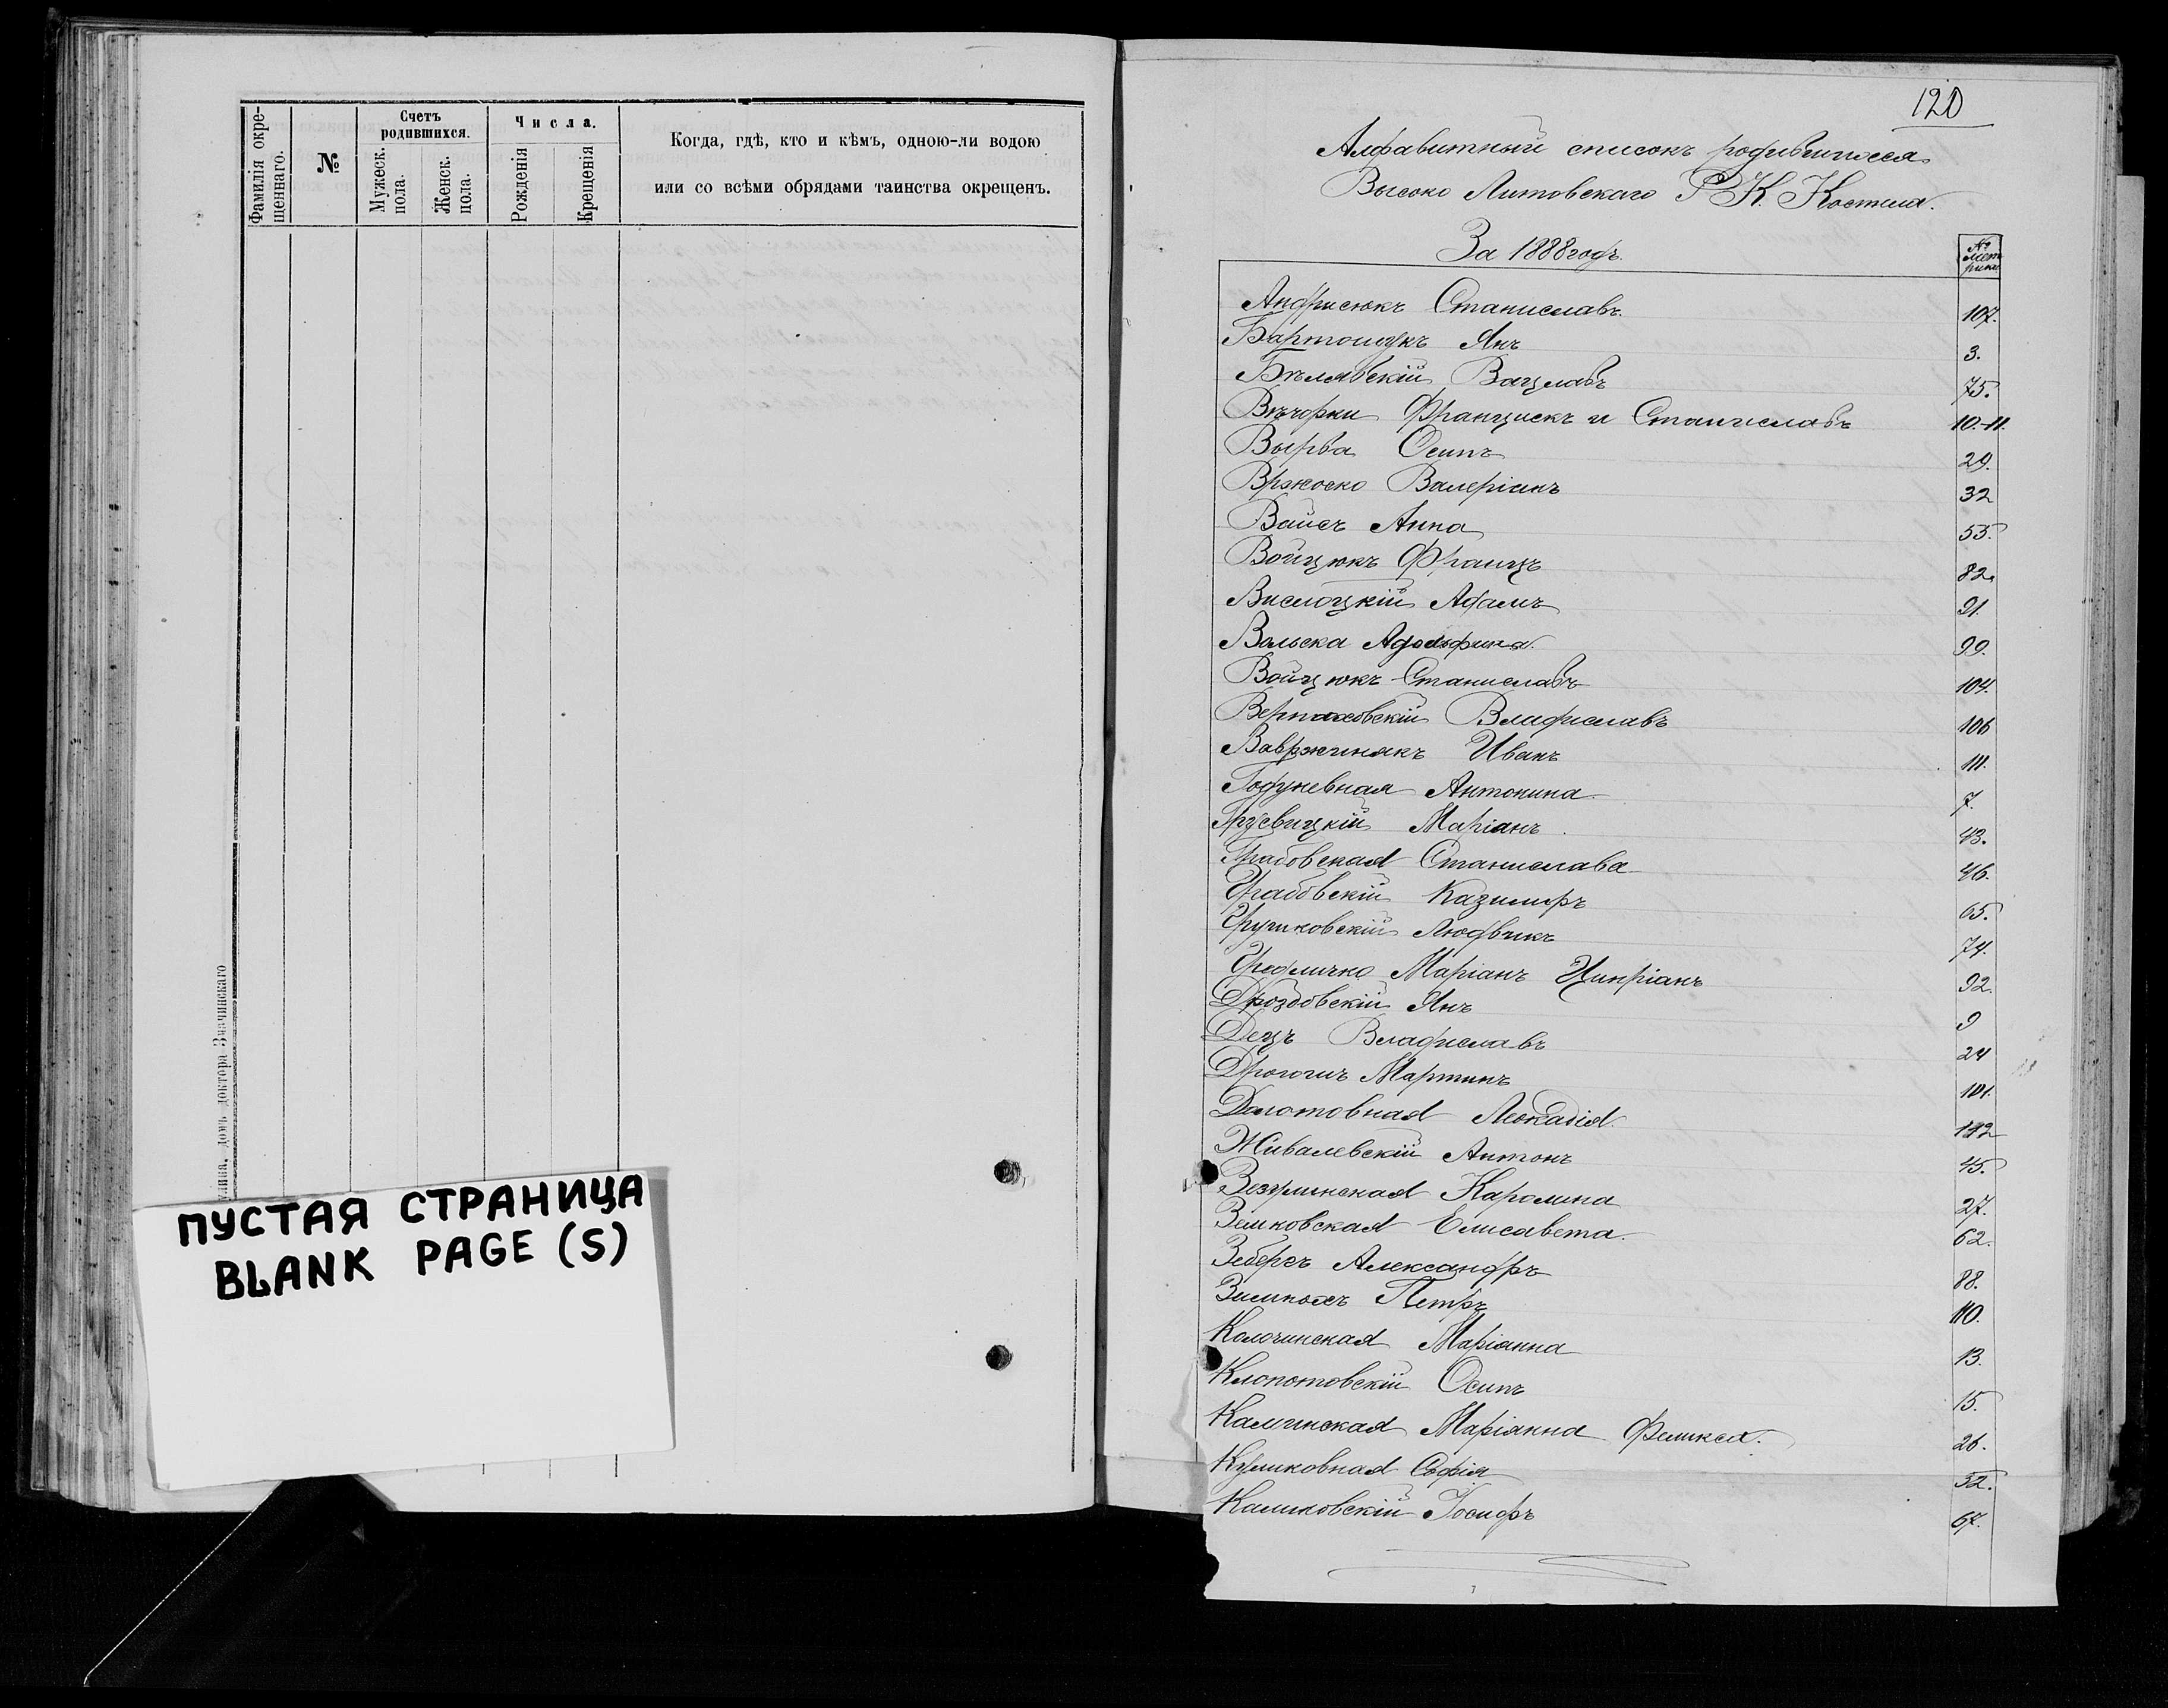 Фамилія окре-
щеннаго.
№
Счетъ
родившихся.
Мужеск.
пола.
Женск.
пола.
Числа.
Рожденія
Крещенія
Когда, гдѣ, кто и кѣмъ, одною-ли водою
или со всѣми обрядами таинства окрещенъ.
домъ доктора Значинскаго
ПУСТАЯ СТРАНИЦА
BLANK PAGE (S)
120
Алфавитный списокъ родившихся
Высоко Литовскаго Р. К. Костела.
За 1888 годъ.
№
мет
рики
Андрисюкъ Станиславъ. 107.
Бартошукъ Янъ 3.
Бѣлявскій Вацлавъ 75.
Вѣчорки Францискъ и Станиславъ 10.-11.
Вырва Осипъ 29.
Вржоско Валеріанъ 32
Вайсъ Анна 53.
Войцюкъ Францъ 82.
Вислоцкій Адамъ 91.
Вольска Адольфина. 99.
Войцюкъ Станиславъ 104.
Владиславъ 106
Вавржинякъ Иванъ 111.
Антонина 7.
Маріанъ 43.
Грабовская Станислава 46.
Грабовскій Казимиръ 65.
Грушковскій Людвикъ 74.
Маріанъ Ципріанъ 92.
Дроздовскій Янъ 9
Децъ Владиславъ 24
Мартинъ 101.
Долотовная Леокадія. 112
Живалевскій Антонъ 45.
Каролина 27.
Земковская Елисавета. 62.
Александръ 88.
Петръ 110.
Колочинская Маріанна 13.
Клопотовскій Осипъ 15.
Калинская Маріанна Феликса. 26.
Куликовная Софія 52.
Калиновскій Іосифъ 67.